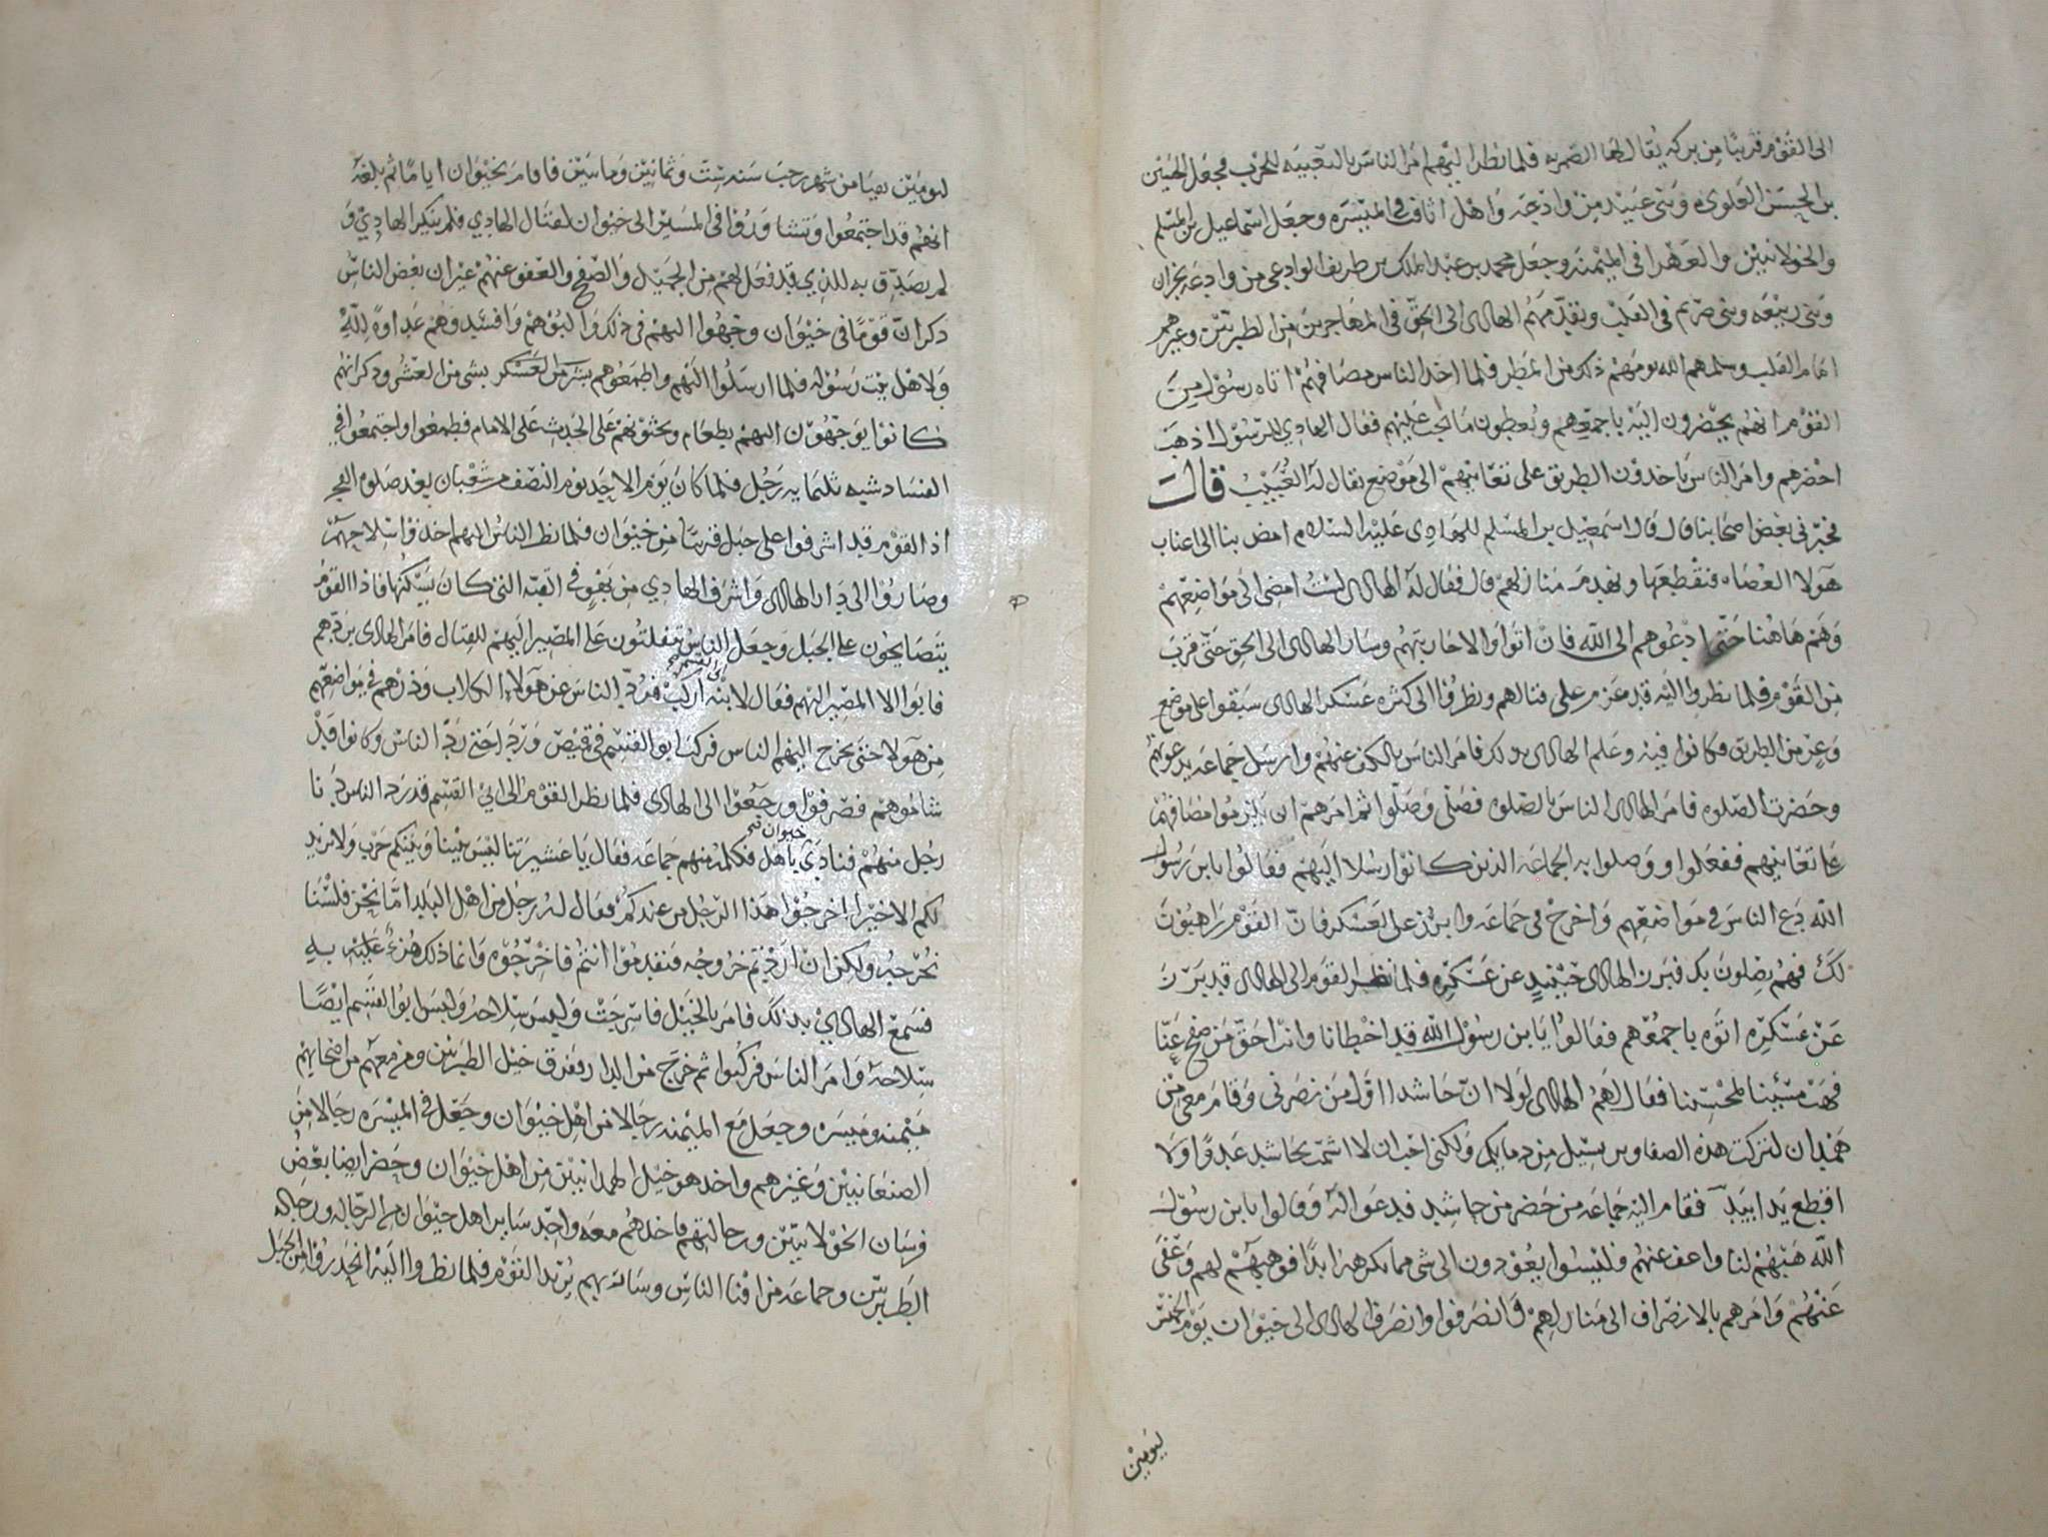 الى القوم قريبًا من بركه يقال لها الصمريه فلما نظر اليهم امر الناس بالتعبيه للحرب فجعل الحسين
بن الحسن العلوى وبنى عبيد من وادعه واهل اثافت فى الميسره وجعل اسماعيل بن المسلم
والخولانيين والعهرا فى الميمنه وجعل محمد بن عبد الملك بن طريف الوادعى من وادعه نجران
وبنى ربيعه وبنى صريم فى القلب وتقدمهم الهادى الى الحق فى المهاجرين من الطبريين وغيرهم
امام القلب وسلمهم الله يومهم ذلك من المطر فلما اخذ الناس مصافهم اتاه رسول من
القوم انهم يحضرون اليه باجمعهم ويعطون ما يجب عليهم فقال الهادي للرسول اذهب
احضرهم وامر الناس ياخذون الطريق على تعابيهم الى موضع يقال له الغبيب قال
فخبرنى بعض اصحابنا قال قال اسمعيل بن المسلم للهادى عليه السلام امض بنا الى اعناب
هولا العصاه فنقطعها ونهدم منازلهم قال فقال له الهادى لست امضى الى مواضعهم
وهم هاهنا حتى ادعوهم الى الله فان اتوا والا حاربتهم وسار الهادى الى الحق حتى قرب
من القوم فلما نظروا اليه قد عزم على قتالهم ونظروا الى كثره عسكر الهادى سبقوا على موضع
وعر من الطريق فكانوا فيه وعلم الهادى بذلك فامر الناس بالكف عنهم وارسل جماعه يدعونهم
وحضرت الصلوه فامر الهادى الناس بالصلوه فصلى وصلوا ثم امرهم ان يلزموا مصافهم
على تعابيهم ففعلوا ووصلوا به الجماعه الذين كانوا رسلا اليهم فقالوا يابن رسول
الله دع الناس فى مواضعهم واخرج فى جماعه وابرز على العسكر فان القوم راهبون
لك فهم يصلون بك فبرز الهادى حينئذٍ عن عسكره فلما نظر القوم الى الهادى قد برز
عن عسكره اتوه باجمعهم فقالوا يابن رسول الله قد اخطانا وانت احق من صفح عنا
فهب مسيئنا لمحسننا فقال لهم الهادى لولا ان حاشدا اول من نصرنى وقام معى من
همدان لتركت هذه الصفا وبر يسيل من دمايكم ولكنى احب ان لا اشمت بحاشد عدوًا ولا
اقطع يدا بيد فقام اليه جماعه من حضر من حاشد فدعوا له وقالوا يابن رسول
الله هبهم لنا واعف عنهم فليسوا يعودون الى شى مما تكره ابدًا فوهبهم لهم وعفى
عنهم وامرهم بالانصراف الى منازلهم فانصرفوا وانصرف الهادى الى خيوان يوم الخميس
ليومين
ليومين بقيا من شهر رجب سنه ست وثمانين ومايتين فاقام بخيوان اياما ثم بلغه
انهم قد اجتمعوا وتشاوروا فى المسير الى خيوان لقتال الهادي فلم ينكر الهادي و
لم يصدق به للذي قد فعل لهم من الجميل والصفح والعفو عنهم غير ان بعض الناس
ذكر ان قومًا فى خيوان وجهوا اليهم فى ذلك والبوهم وافسدوهم عداوةً لله
ولاهل بيت رسوله فلما ارسلوا اليهم واطمعوهم بشى من العشر وذكر انهم
كانوا يوجهون اليهم بطعام ويحثونهم على الحدث على الامام فطمعوا واجتمعوا فى
الفساد شبيه ثلثمايه رجل فلما كان يوم الاحد يوم النصف من شعبان بعد صلوه الفجر
اذا القوم قد اشرفوا على جبل قريبًا من خيوان فلما نظر الناس اليهم اخذوا سلاحهم
وصاروا الى دار الهادى واشرف الهادي من بعض فى القبه التى كان يسكنها فاذا القوم
يتصايحون على الجبل وجعل الناس يتفلتون على المصير اليهم للقتال فامر الهادى بردهم
فابوا الا المصير اليهم فقال لابنه ابى القسم اركب فرد الناس عن هولاء الكلاب وذرهم فى مواضعهم
من هولا حتى يخرج اليهم الناس فركب ابو القسم فى قميص وردا حتى رد الناس وكانوا قد
شاموهم فصرفوا ورجعوا الى الهادى فلما نظر القوم الى ابي القسم قد رد الناس دنا
رجل منهم فنادى يا اهل خيوان فكلمه منهم جماعه فقال يا عشيرتنا ليس بيننا وبينكم حرب ولا نريد
لكم الا خيرا اخرجوا هذا الرجل من عندكم فقال له رجل من اهل البلد اما نحن فلسنا
نخرجه ولكن ان اردتم خروجه فتقدموا انتم فاخرجوه وانما ذلك هزءٌ عليه به
فسمع الهادي بذلك فامر بالخيل فاسرجت ولبس سلاحه ولبس ابو القسم ايضًا
سلاحه وامر الناس فركبوا ثم خرج من الدار وفرق خيل الطبريين ومن معهم من اصحابهم
ميمنه وميسره وجعل مع الميمنه رجالا من اهل خيوان وجعل فى الميسره رجالا من
الصنعانيين وغيرهم واخذ هو خيل الهمدانيين من اهل خيوان وحضر ايضا بعض
فرسان الخولانيين ورجالتهم فاخذهم معه واخذ ساير اهل خيوان من الرجاله ورجاله
الطبريين وجماعه من افنا الناس وسار بهم يريد القوم فلما نظروا اليه انحدروا من الجبل